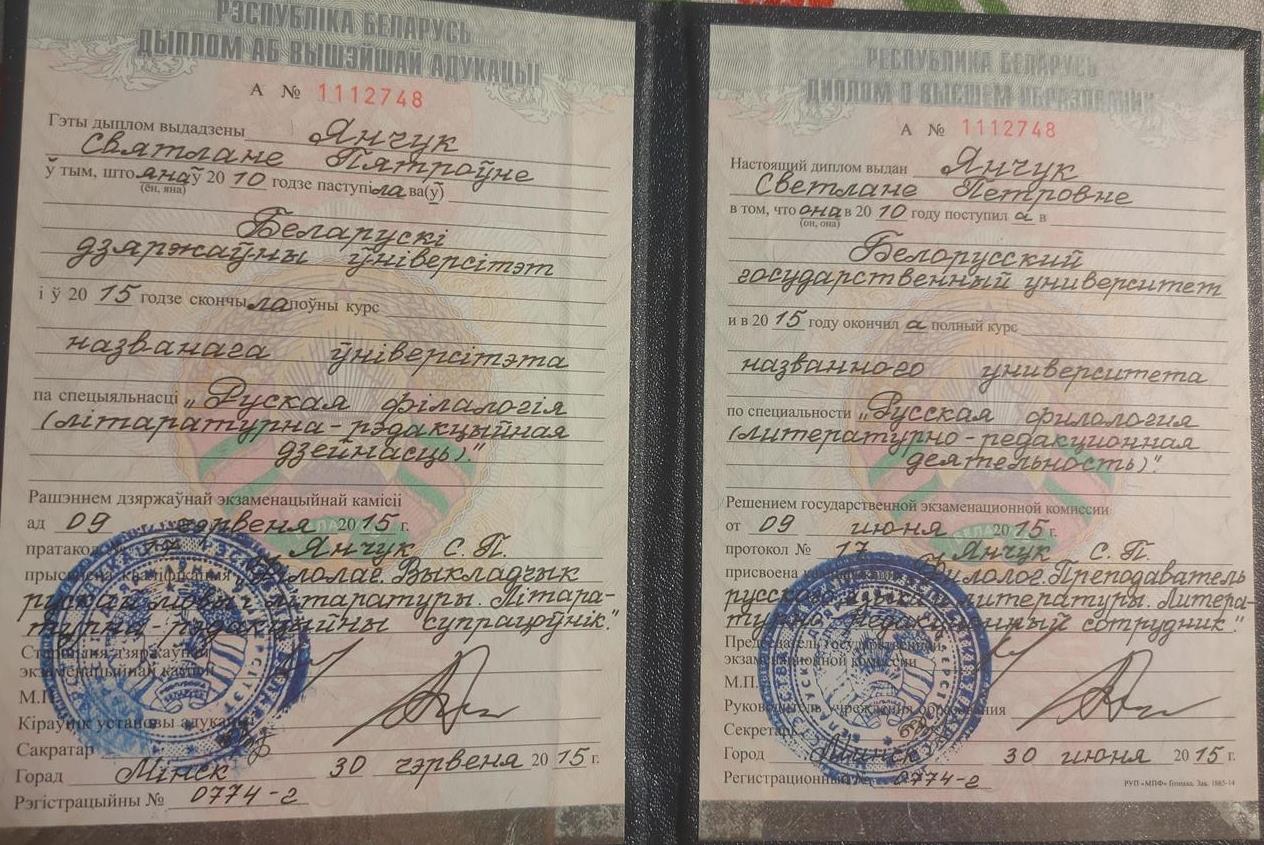 РЭСПУБЛІКА БЕЛАРУСЬ
ДЫПЛОМ АБ ВЫШЭЙШАЙ АДУКАЦЫІ
А № 1112748
Гэты дыплом выдадзены Янчук
Святлане Пятроўне
ў тым, што яна ў 20 10 годзе паступі ла ва(ў)
(ён, яна)
Беларускі
дзяржаўны ўніверсітэт
і ў 20 15 годзе скончы ла поўны курс
названага ўніверсітэта
па спецыяльнасці „Руская філалогія
(літаратурна-рэдакцыйная
дзейнасць)"
Рашэннем дзяржаўнай экзаменацыйнай камісіі
ад 09 чэрвеня 20 15 г.
пратакол Янчук С. П.
прысвоена кваліфікацыя Філолаг. Выкладчык
рускай мовы і літаратуры. Літара-
турна-рэдакцыйны супрацоўнік."
Старшыня дзяржаўнай
экзаменацыйнай камісіі
М.П.
Кіраўнік установы адукацыі
Сакратар
Горад Мінск 30 чэрвеня 20 15 г.
Рэгістрацыйны № 0774-г
РЕСПУБЛИКА БЕЛАРУСЬ
ДИПЛОМ О ВЫСШЕМ ОБРАЗОВАНИИ
А № 1112748
Настоящий диплом выдан Янчук
Светлане Петровне
в том, что она в 20 10 году поступил а в
(он, она)
Белорусский
государственный университет
и в 20 15 году окончил а полный курс
названного университета
по специальности „Русская филология
(литературно-редакционная
деятельность)".
Решением государственной экзаменационной комиссии
от 09 июня 20 15 г.
протокол № 17 Янчук С. П.
присвоена Филолог. Преподаватель
русского языка и литературы. Литера-
турно-редакционный сотрудник."
Председатель государственной
экзаменационной комиссии
М.П.
Руководитель учреждения образования
Секретарь
Город Минск 30 июня 20 15 г.
Регистрационный № 0774-г
РУП «МПФ» Гознака. Зак. 1885-14